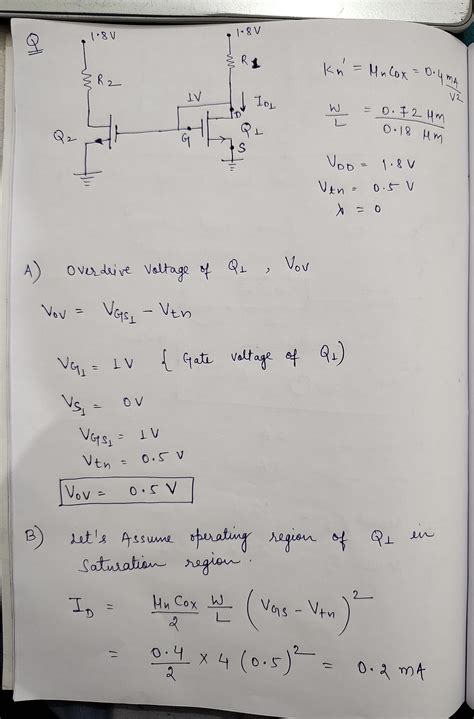 Q
1.8V
1.8V
R2
R1
1V
ID1
D
Q2
G
Q1
S
Kn' = MnCox = 0.4 mA/V2
W/L = 0.72 Mm / 0.18 Mm
VDD = 1.8V
Vtn = 0.5 V
λ = 0
A) Overdrive Voltage of Q1 , Vov
Vov = VGS1 - Vtn
VG1 = 1V { Gate voltage of Q1)
VS1 = 0V
VGS1 = 1V
Vtn = 0.5 V
Vov = 0.5 V
B) Let's Assume operating region of Q1 in
Saturation region.
ID = MnCox/2 W/L (VGS - Vtn)2
= 0.4/2 × 4 (0.5)2 = 0.2 mA